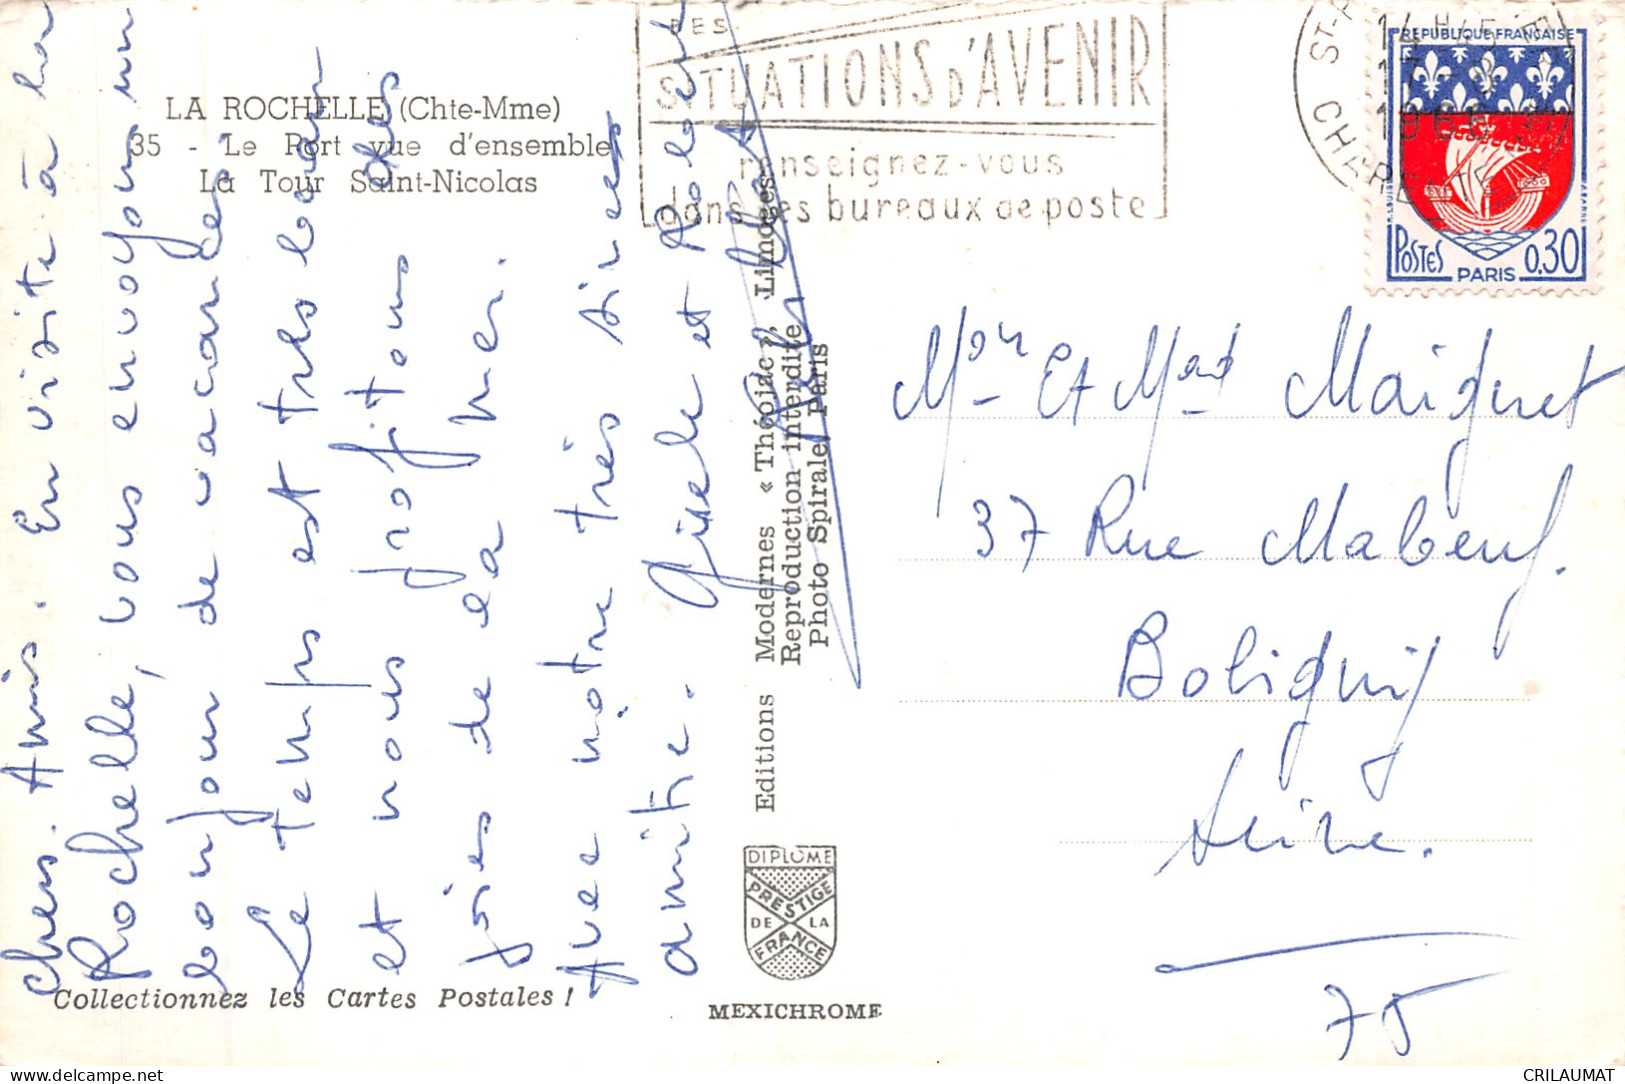 LA ROCHELLE (Chte-Mme)
35 - Le Port vue d'ensemble
La Tour Saint-Nicolas
chers. Amis. En visite à la
Rochelle, vous envoyons un
bonjour de vacances.
Le temps est très beau
et nous profitons des
joies de la mer.
Avec notre très sincère
amitié. Gisèle et Robert
Collectionnez les Cartes Postales !
Editions Modernes « Théojac », Limoges
Reproduction interdite
Photo Spirale, Paris
DIPLOME
PRESTIGE
DE LA
FRANCE
MEXICHROME
DES
SITUATIONS D'AVENIR
renseignez-vous
dans les bureaux de poste
14 H
17
196
CHARENTE
REPUBLIQUE FRANÇAISE
POSTES PARIS 0,30
Mon- Et Mad- Maiguet
37 Rue Mabeuf.
Bobigny
Seine.
75
CRILAUMAT